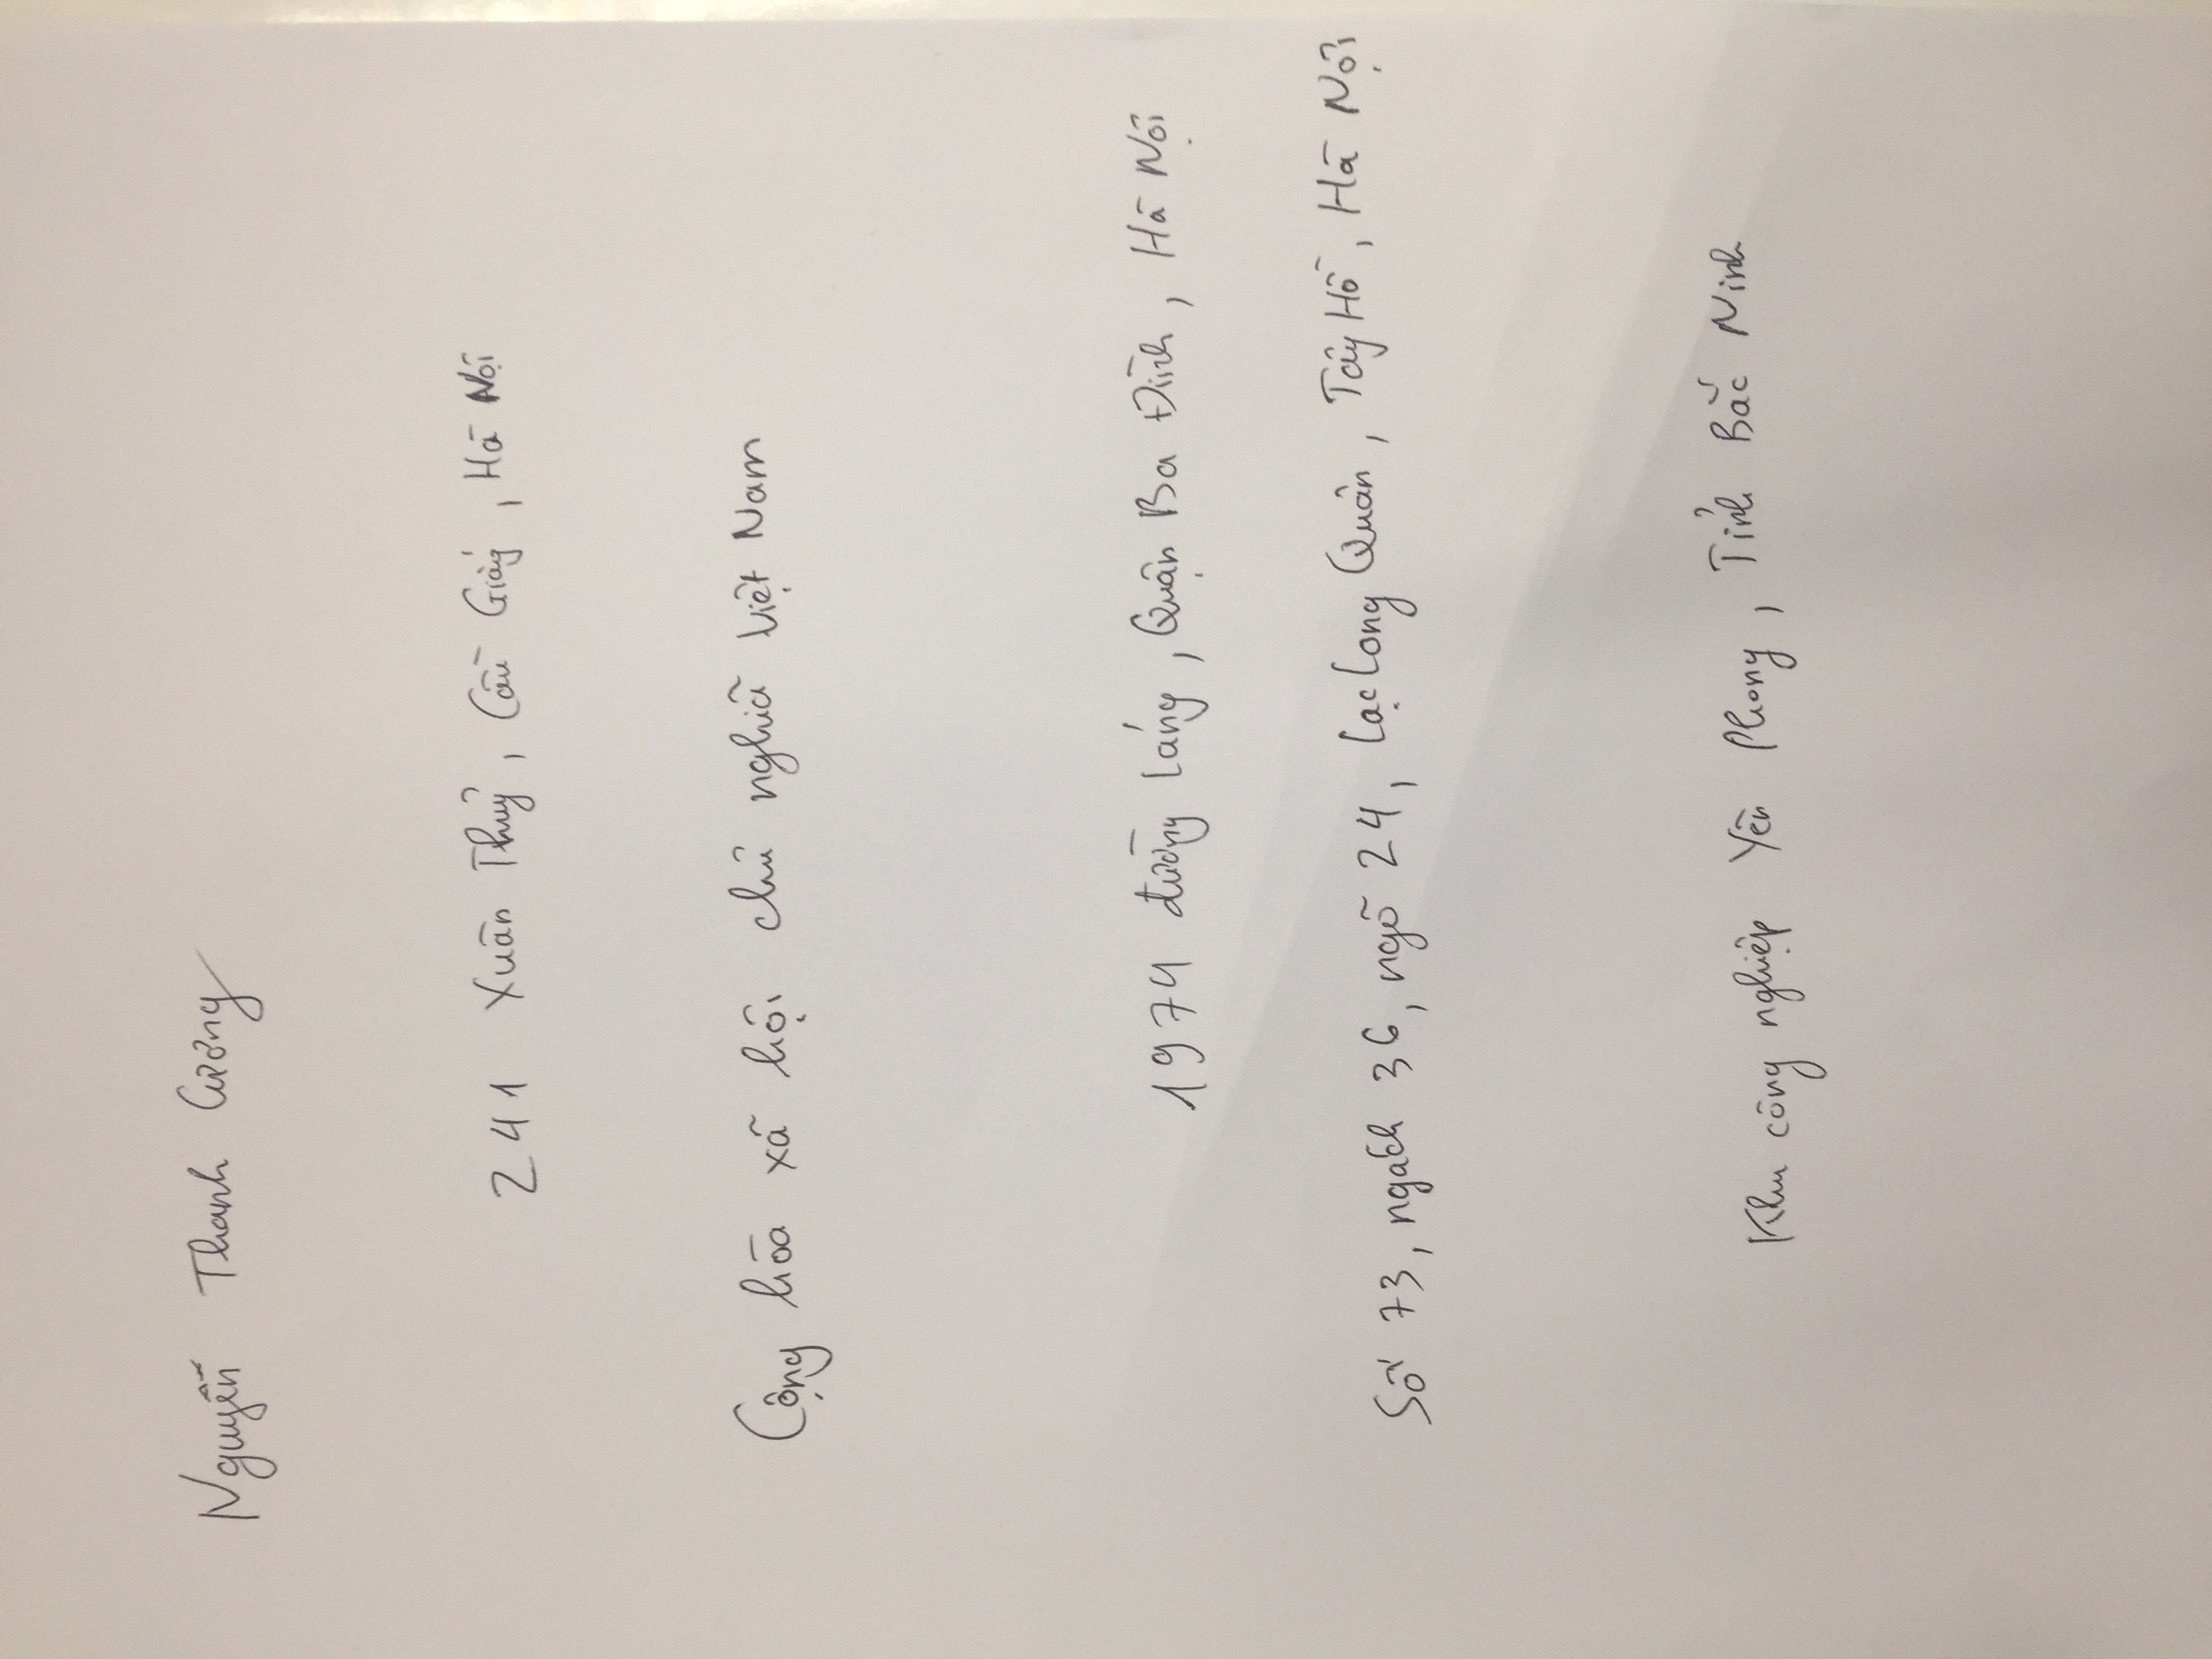 Nguyễn Thanh Cương
241 Xuân Thuỷ, Cầu Giấy, Hà Nội
Cộng hòa xã hội chủ nghĩa Việt Nam
1974 đường Láng, Quận Ba Đình, Hà Nội
Số 73, ngách 36, ngõ 24, Lạc Long Quân, Tây Hồ, Hà Nội
Khu công nghiệp Yên Phong, Tỉnh Bắc Ninh